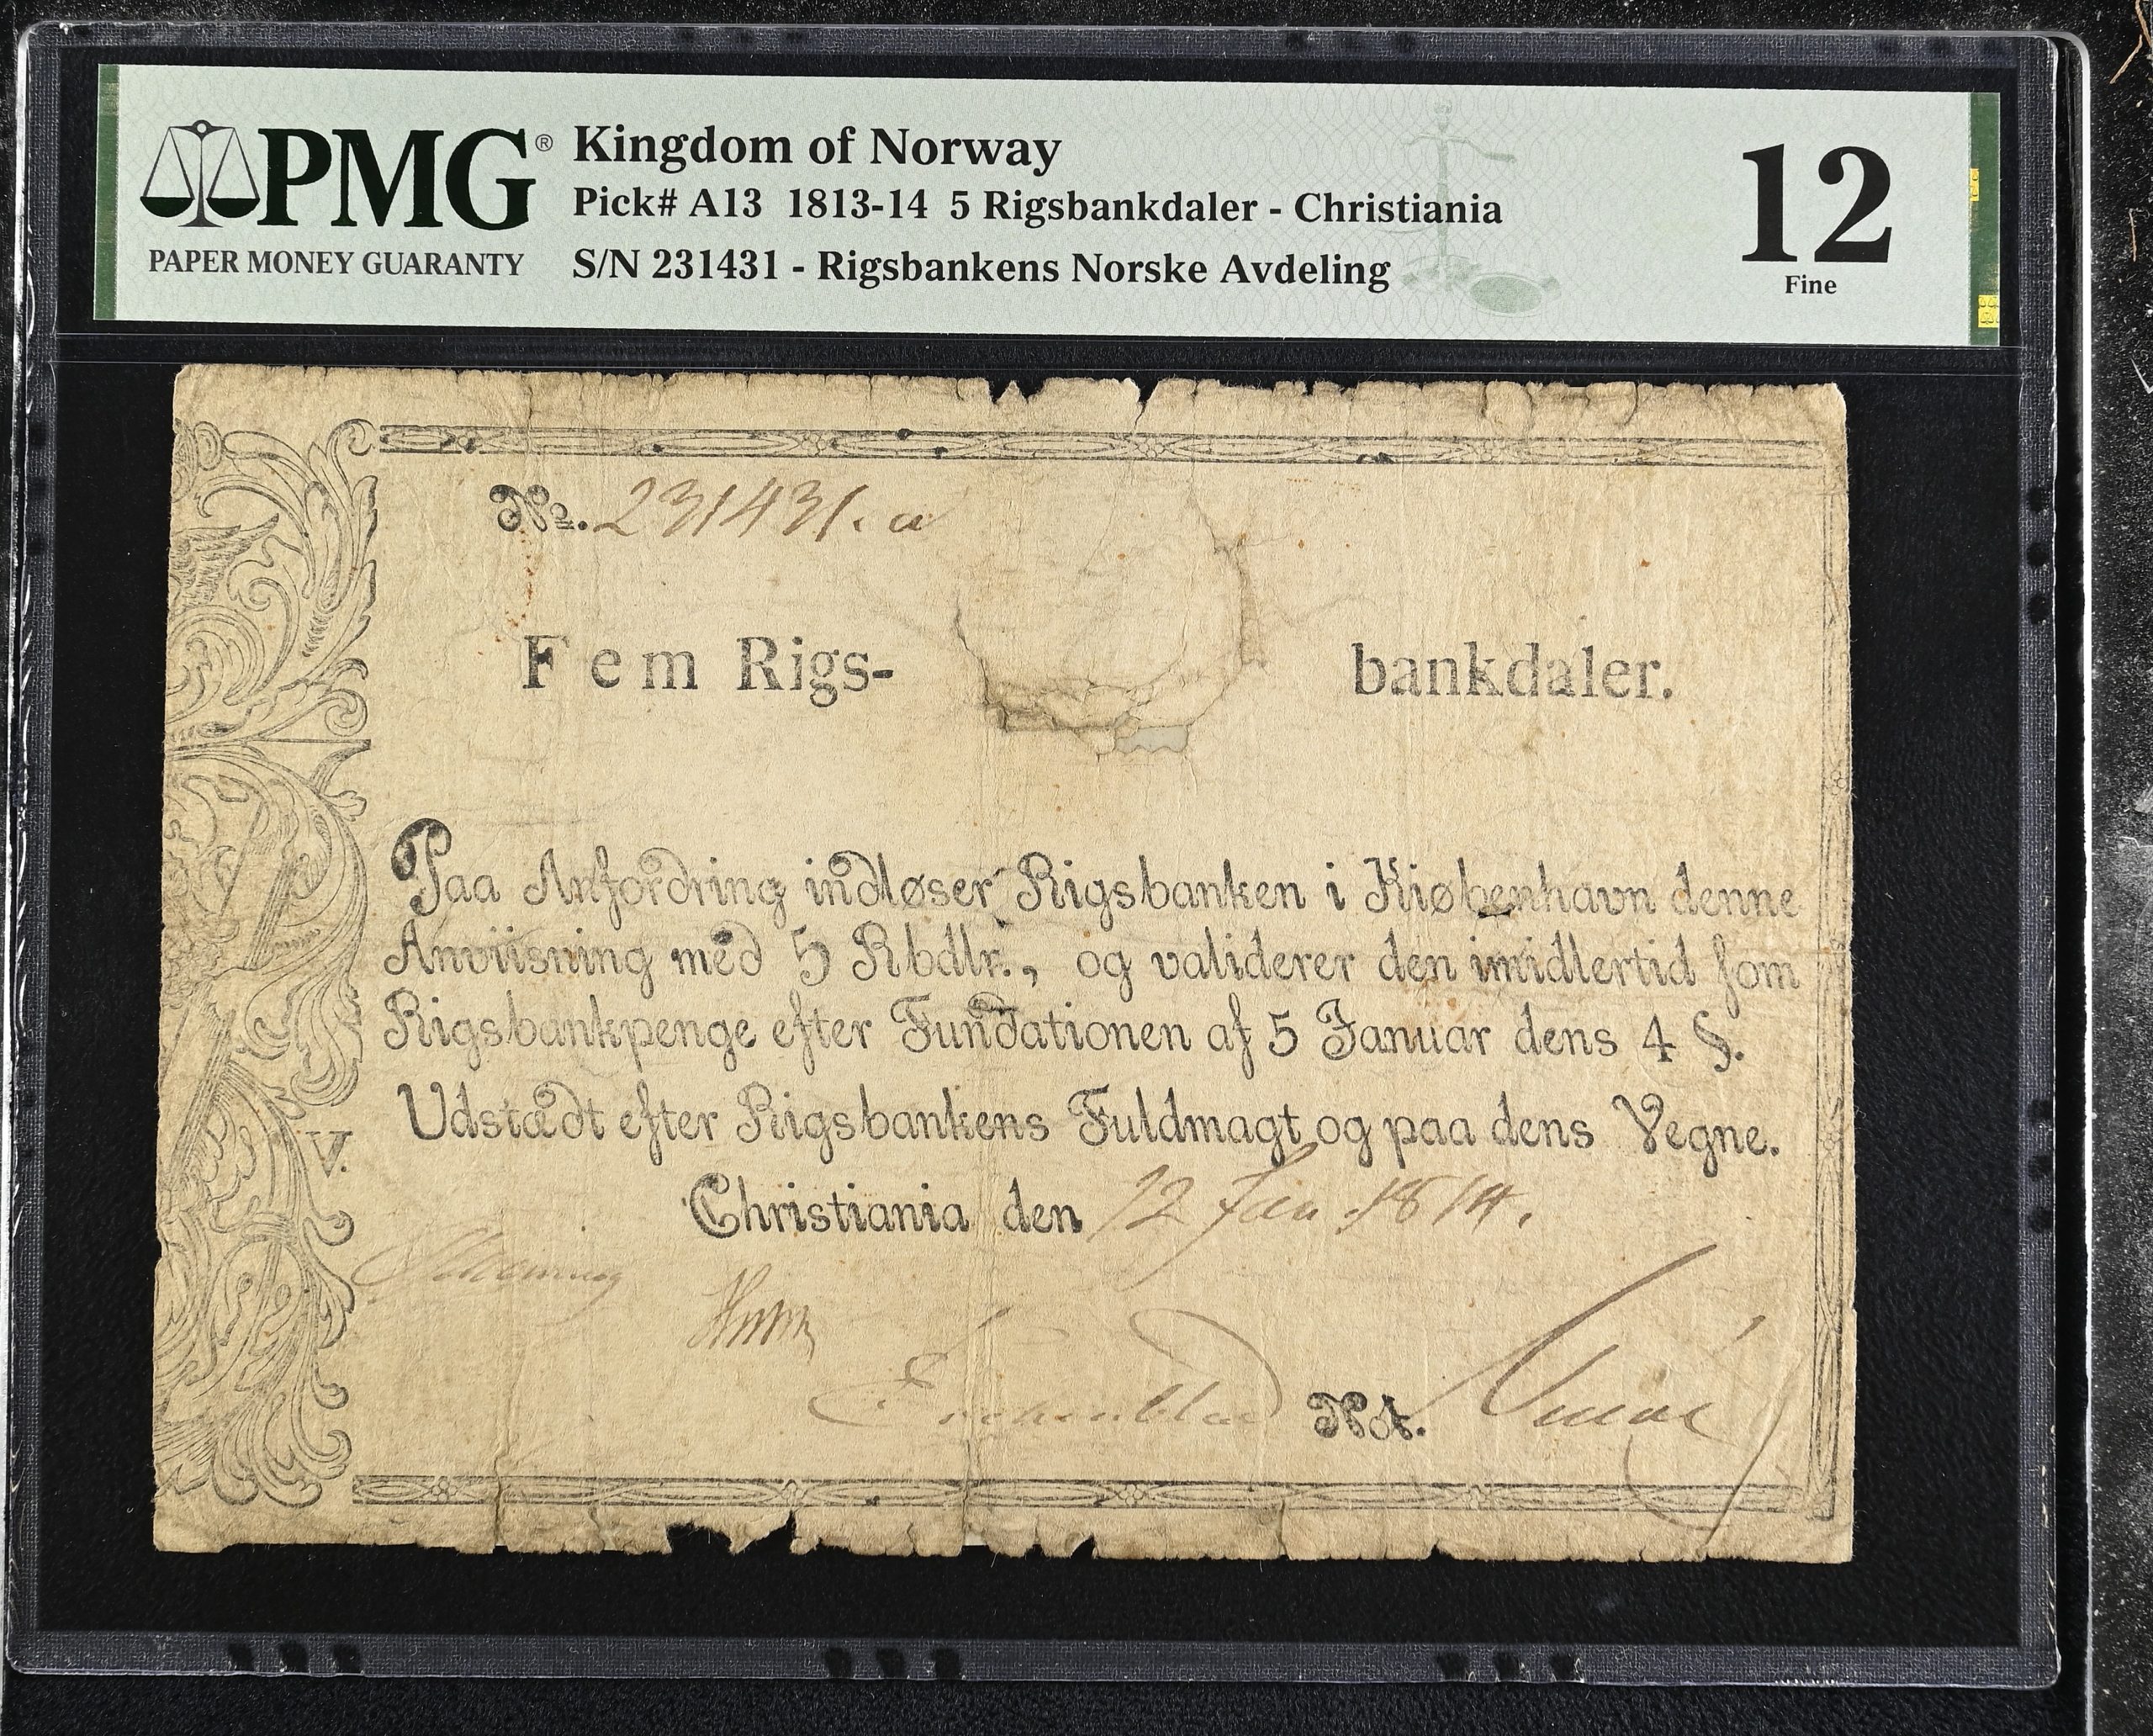 PMG®
PAPER MONEY GUARANTY
Kingdom of Norway
Pick# A13 1813-14 5 Rigsbankdaler - Christiania
S/N 231431 - Rigsbankens Norske Avdeling
12
Fine
No. 231431. a
Fem Rigs- bankdaler.
Paa Anfordring indløser Rigsbanken i Kiøbenhavn denne
Anviisning med 5 Rbdlr., og validerer den imidlertid som
Rigsbankpenge efter Fundationen af 5 Januar dens 4 §.
Udstædt efter Rigsbankens Fuldmagt og paa dens Vegne.
V.
Christiania den 12 Jan 1814.
Not.